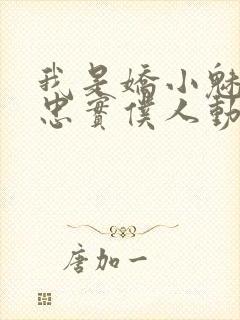 我是嬌小魅
忠實僕人動
唐加一